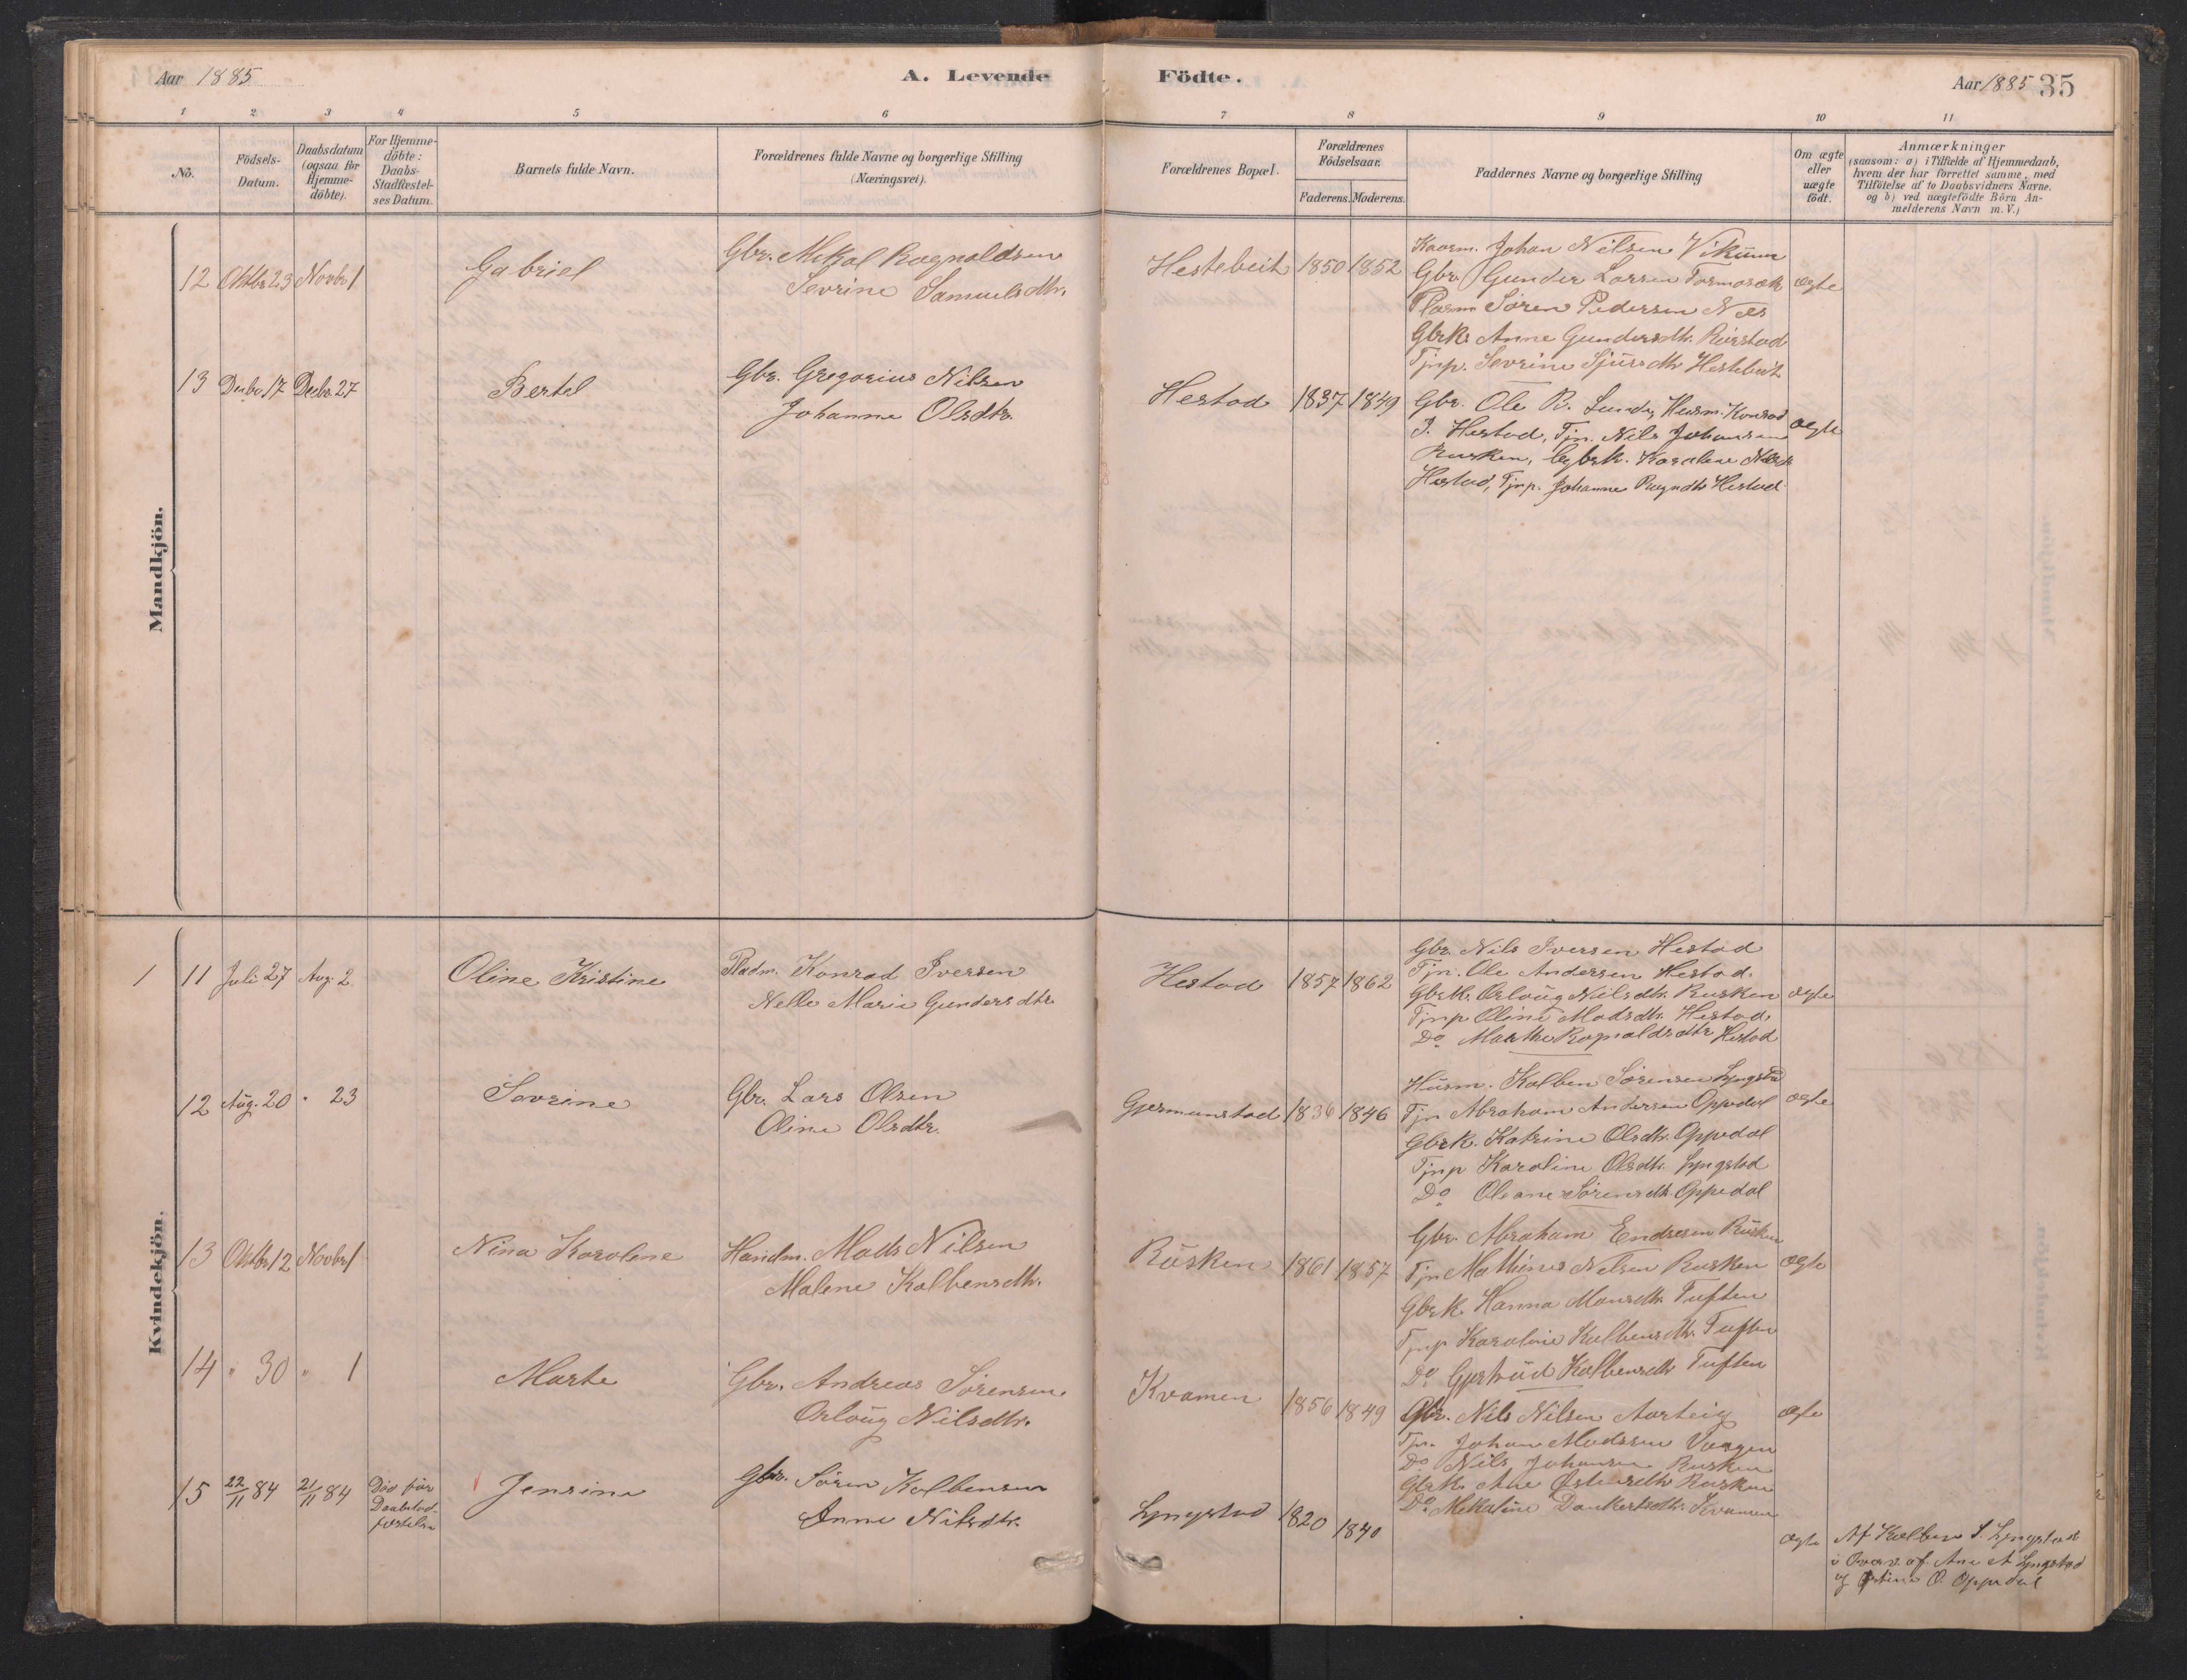 Aar 1885
A. Levende Födte.
Aar 1885 35
1 2 3 4 5 6 7 8 9 10 11
No.
Födsels-Datum.
Daabsdatum (ogsaa for Hjemme-döbte).
For Hjemme-döbte: Daabs-Stadfæstel-ses Datum.
Barnets fulde Navn.
Forældrenes fulde Navne og borgerlige Stilling
(Næringsvei).
Forældrenes Bopæl.
Forældrenes Födselsaar.
Faderens. Moderens.
Faddernes Navne og borgerlige Stilling
Om ægte eller uægte födt.
Anmærkninger
(saasom: a) i Tilfælde af Hjemmedaab,
hvem der har forrettet samme, med
Tilföielse af to Daabsvidners Navne.
og b) ved uægtefödte Börn An-
melderens Navn m. V.)
Mandkjön.
12 Oktbr 23 Novbr 1 Gabriel
Gbr. Mikal Ragnaldsen
Sevrine Samuelsdtr.
Hestebeit 1850 1852
Kaarm. Johan Nilsen Vikum
Gbr. Gunder Larsen Tormosæk
Søren Pedersen Næs
Gbrk. Anne Gundersdtr. Rørstad
Tjnp. Sevrine Sjursdtr Hestebeit
ægte
13 Decbr 17 Decbr. 27 Bertel
Gbr. Gregorius Nilsen
Johanne Olsdtr.
Hestad 1837 1849
Gbr. Ole R. Lunde, Husm. Konrad
I. Hestad, Tjn. Nils Johansen
Rusken, Gbrk. Karolene
Hestad, Tjnp. Johanne Ragndtr Hestad
ægte
Kvindekjön.
1 11 Juli 27 Aug. 2 Oline Kristine
Pladm. Konrad Iversen
Nelle Marie Gundersdtr
Hestad 1857 1862
Gbr. Nils Iversen Hestad
Tjn. Ole Andersen Hestad.
Gbrk. Orloug Nilsdtr. Rusken
Tjnp Oline Madsdtr. Hestad.
Do Marthe Ragnaldsdtr Hestad
ægte
12 Aug. 20 " 23 Sevrine
Gbr. Lars Olsen
Oline Olsdtr.
Gjermunstad 1836 1846
Husm. Kolben Sørensen Lyngstad
Tjn Abraham Andersen Oppedal
Gbrk. Katrine Olsdtr. Oppedal
Tjnp Karoline Olsdtr. Lyngstad
Do Oleane Sørensdtr. Oppedal
ægte
13 Oktbr 12 Novbr 1 Nina Karolene
Handm. Mads Nilsen
Malene Kolbensdtr.
Rusken 1861 1857
Gbr. Abraham Endresen Rusken
Tjn Mathines Nilsen Rusken
Gbrk. Hanna Monsdtr. Tuften
Tjnp Karoline Kolbensdtr. Tuften
Do Gjertrud Kolbensdtr Tuften
ægte
14 " 30 " 1 Marte
Gbr. Andreas Sørensen
Orloug Nilsdtr.
Kvamen 1856 1849
Gbr. Nils Nilsen Aarteig
Tjn. Johan Madssen Vaagen
Do Nils Johansen Rusken
Gbrk. Ane Østensdtr Rusken
Do Mekaline Dankertsdtr. Kvamen
ægte
15 22/11 84 21/11 84 Død før Daabstad-fæstelse Jensine
Gbr. Søren Kolbensen
Anne Nilsdtr.
Lyngstad 1820 1840
ægte
Af Kolben S. Lyngstad
i Overv. af Ane A Lyngstad
og O. Oppedal